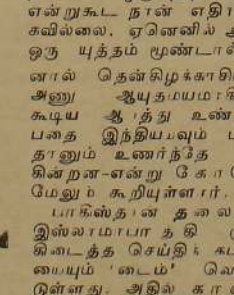 என்றுகூட நான் எதிர்
கவில்லை. ஏனெனில் அ
ஒரு யுத்தம் மூண்டால்
னால் தென்கிழக்காசி
அணு ஆயுதமயமாகி
கூடிய ஆபத்து உண்
பதை இந்தியாவும் ப
தானும் உணர்ந்தே
கின்றன-என்று கோ
மேலும் கூறியுள்ளார்.
பாகிஸ்தான தலை
இஸ்லாமாபா த கி
கிடைத்த செய்தி க
யையும் 'டைம்' வெ
டுள்ளது. அதில் கா